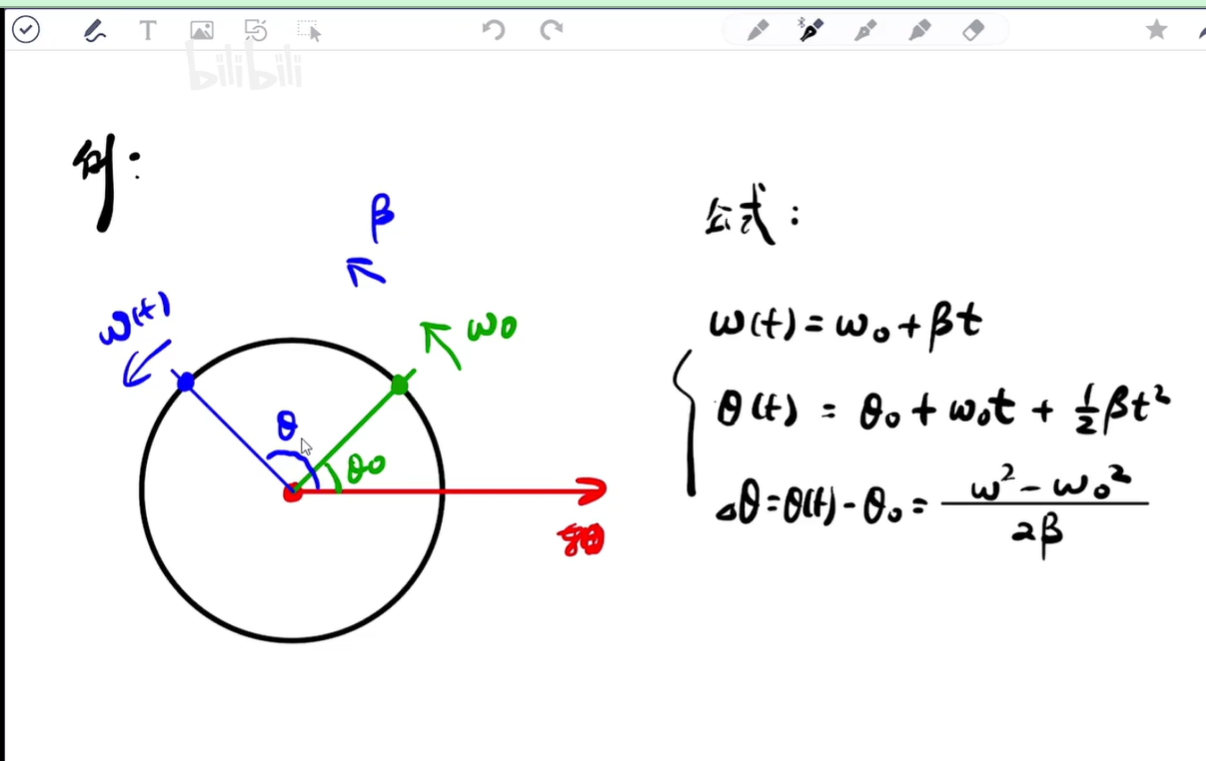 T
bilibili
例:
β
ω(t)
ω₀
θ
θ₀
公式:
ω(t) = ω₀ + βt
θ(t) = θ₀ + ω₀t + ½βt²
△θ = θ(t) - θ₀ = (ω² - ω₀²)/2β